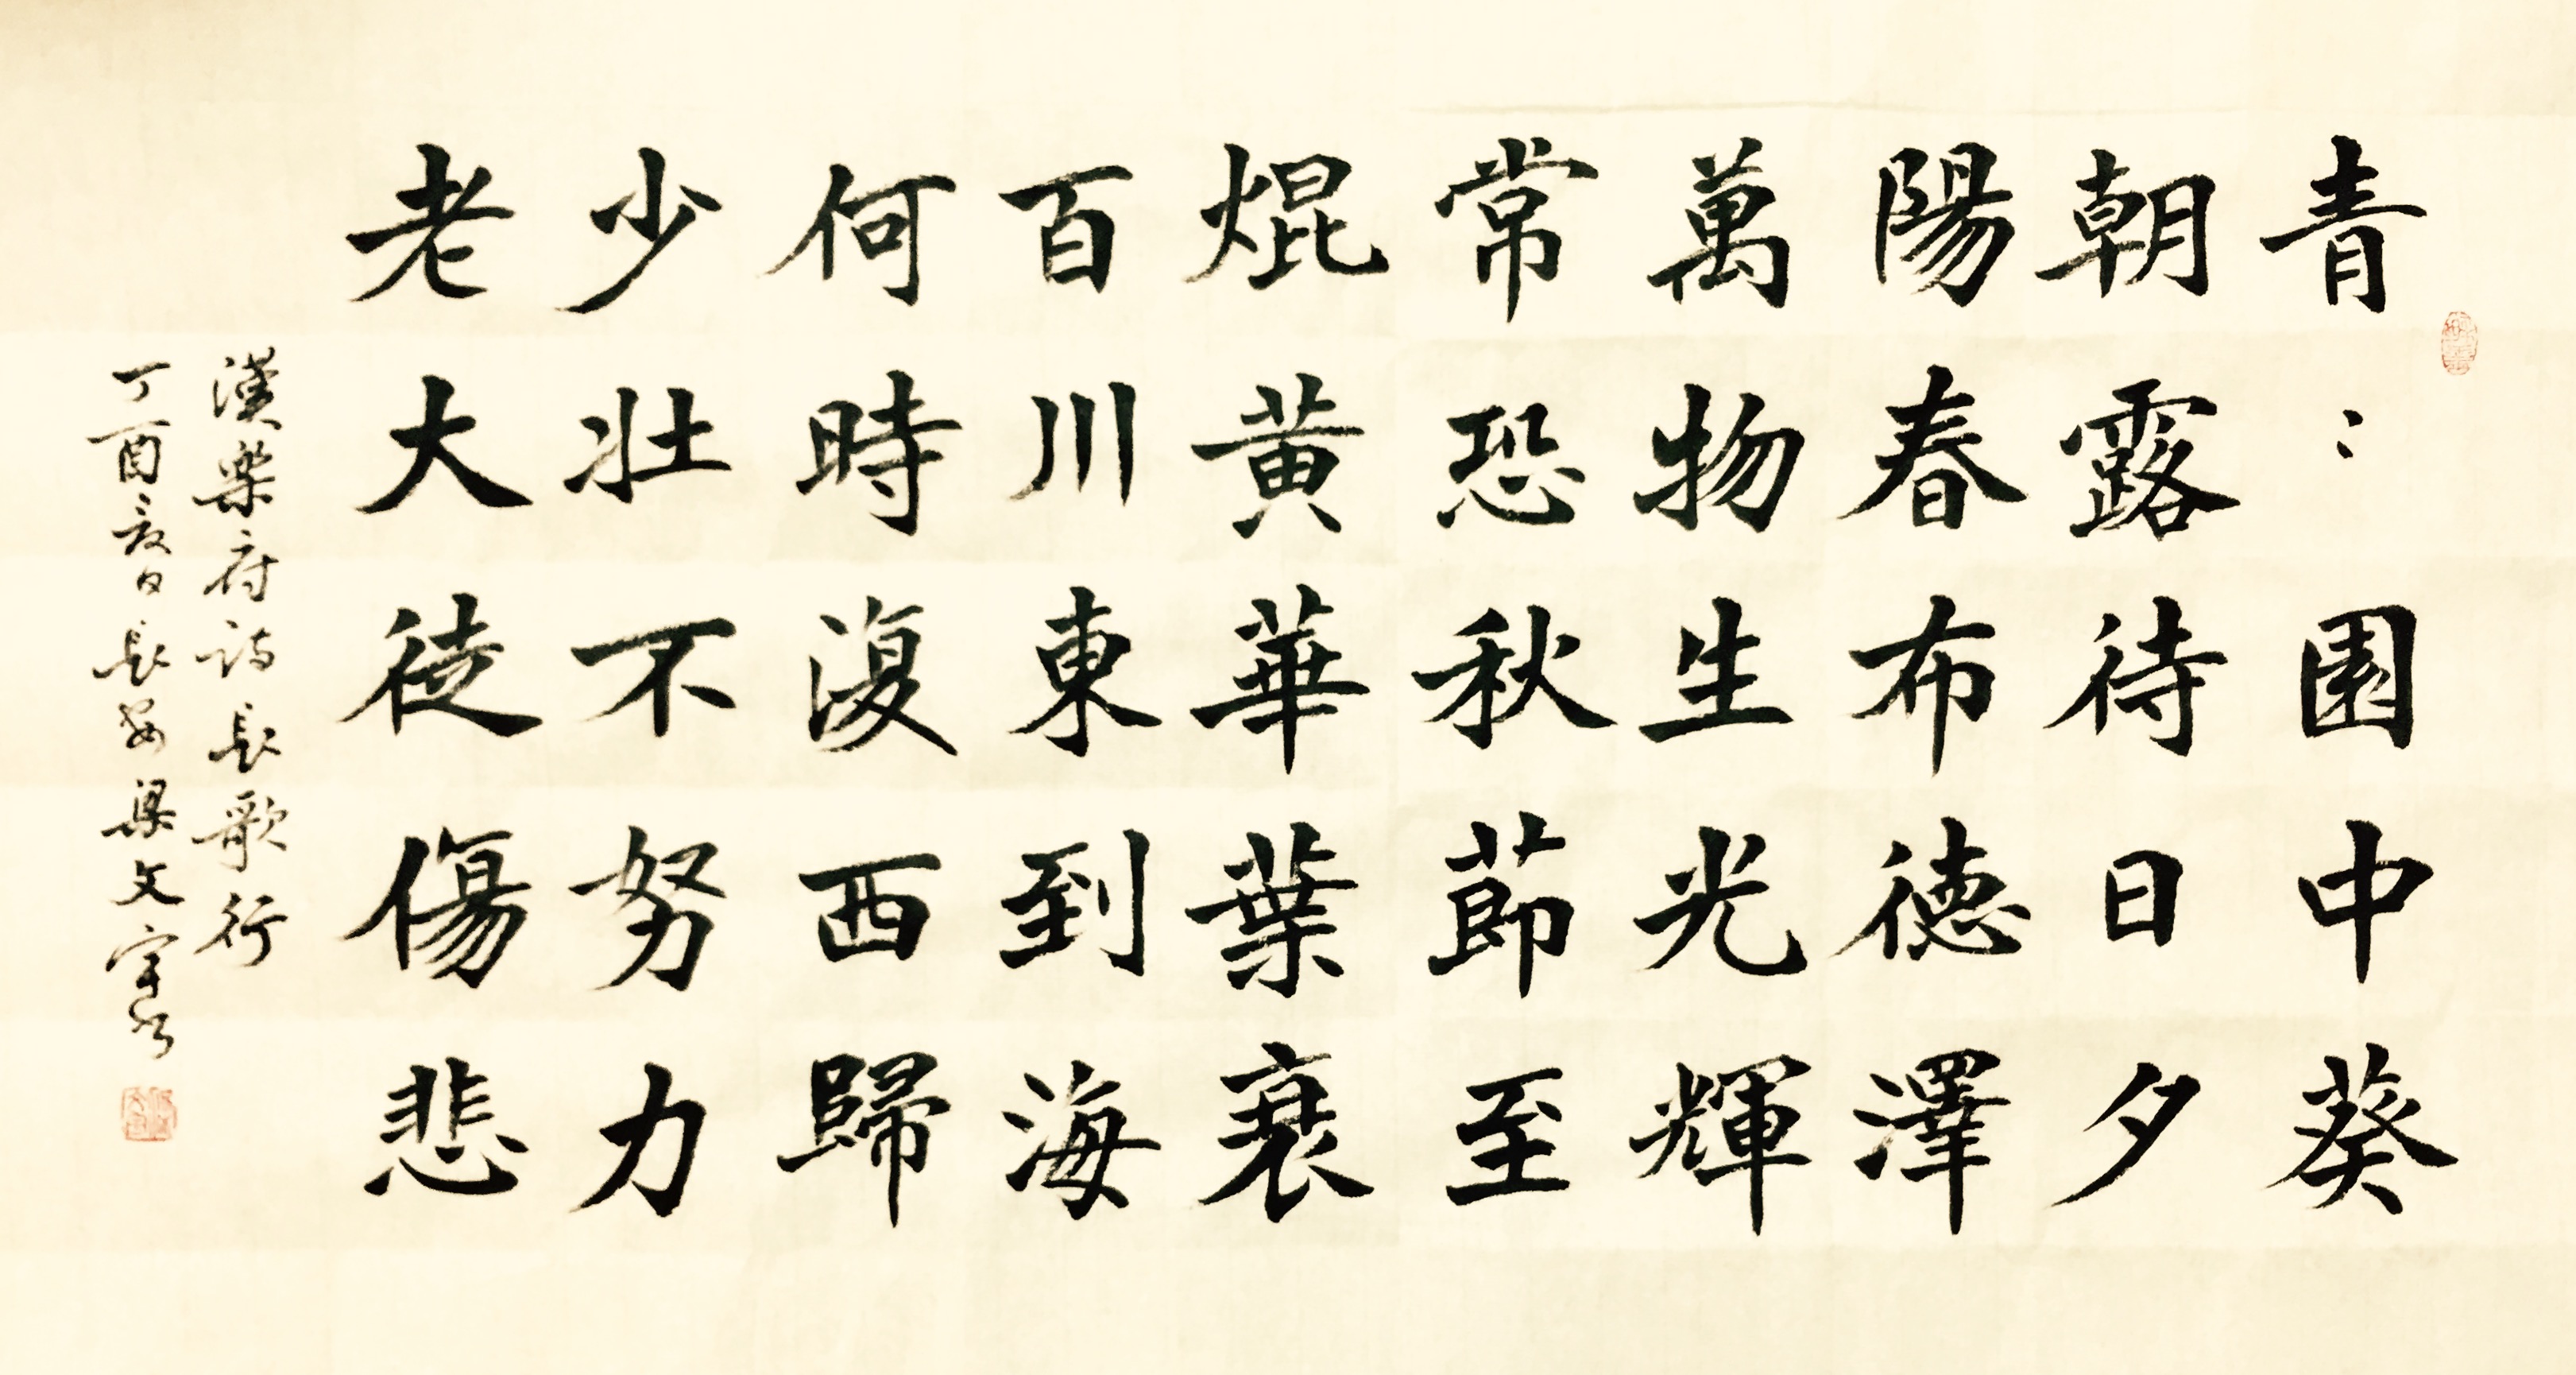 青〻園中葵
朝露待日夕
陽春布德澤
萬物生光輝
常恐秋莭至
焜黃華葉衰
百川東到海
何時復西歸
少壯不努力
老大徒傷悲
漢樂府詩長歌行
丁酉夏日長安梁文宇書